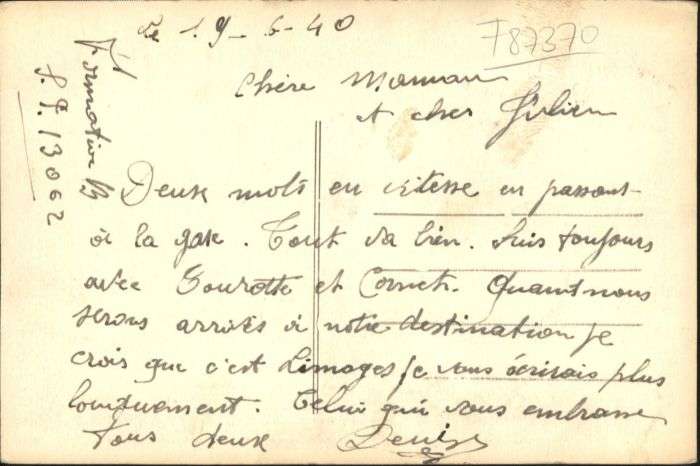 Le 19-6-40
F87370
Formation B3
S.P. 13062
Chère Maman
et cher Julien
Deux mots en vitesse en passant
à la gare. Tout va bien. Suis toujours
avec Tourotte et Cornet. Quant nous
serons arrivés à notre destination je
crois que c'est Limoges je vous écrirais plus
longuement. Celui qui vous embrasse
tous deux Denis